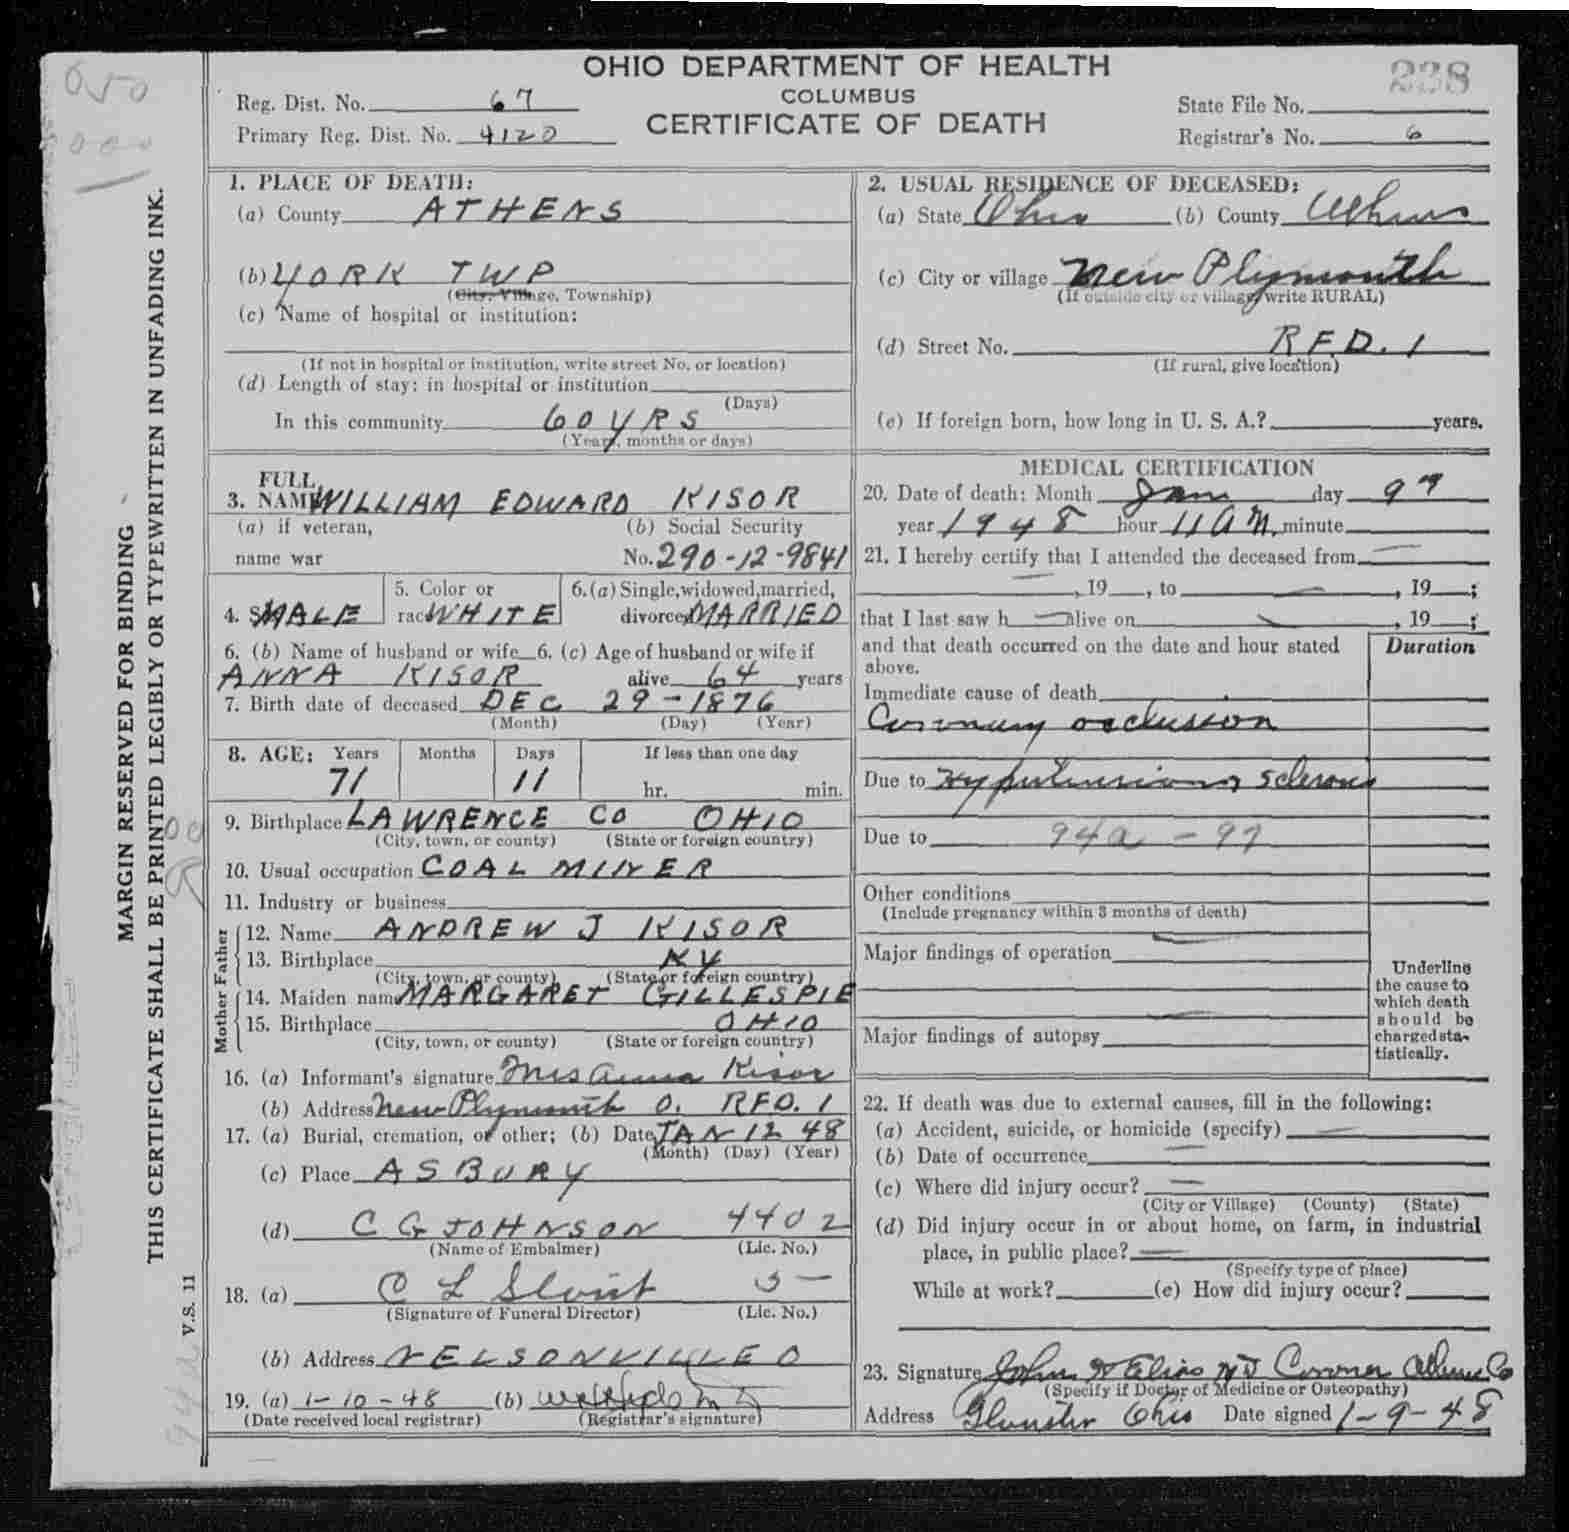 OHIO DEPARTMENT OF HEALTH
COLUMBUS
CERTIFICATE OF DEATH
Reg. Dist. No. 67
Primary Reg. Dist. No. 4120
State File No.
238
Registrar's No. 6
MARGIN RESERVED FOR BINDING
THIS CERTIFICATE SHALL BE PRINTED LEGIBLY OR TYPEWRITTEN IN UNFADING INK.
V.S. 11
1. PLACE OF DEATH:
(a) County ATHENS
(b) YORK TWP
(City, Village, Township)
(c) Name of hospital or institution:
(If not in hospital or institution, write street No. or location)
(d) Length of stay: in hospital or institution
(Days)
In this community 60 YRS
(Years, months or days)
2. USUAL RESIDENCE OF DECEASED:
(a) State Ohio (b) County Athens
(c) City or village New Plymouth
(If outside city or village, write RURAL)
(d) Street No. RFD. 1
(If rural, give location)
(e) If foreign born, how long in U. S. A.? years.
3. FULL NAME WILLIAM EDWARD KISOR
(a) if veteran, name war
(b) Social Security No. 290-12-9841
4. Sex MALE
5. Color or race WHITE
6. (a) Single, widowed, married, divorced MARRIED
6. (b) Name of husband or wife ANNA KISOR
6. (c) Age of husband or wife if alive 64 years
7. Birth date of deceased DEC 29-1876
(Month) (Day) (Year)
8. AGE: Years Months Days If less than one day
71 11 hr. min.
9. Birthplace LAWRENCE CO OHIO
(City, town, or county) (State or foreign country)
10. Usual occupation COAL MINER
11. Industry or business
Father
12. Name ANDREW J KISOR
13. Birthplace KY
(City, town, or county) (State or foreign country)
Mother
14. Maiden name MARGARET GILLESPIE
15. Birthplace OHIO
(City, town, or county) (State or foreign country)
16. (a) Informant's signature Mrs Anna Kisor
(b) Address New Plymouth O. RFD. 1
17. (a) Burial, cremation, or other; (b) Date JAN 12 48
(Month) (Day) (Year)
(c) Place ASBURY
(d) C G JOHNSON 4402
(Name of Embalmer) (Lic. No.)
18. (a) C L
(Signature of Funeral Director) (Lic. No.)
(b) Address NELSONVILLE O
19. (a) 1-10-48 (b)
(Date received local registrar) (Registrar's signature)
MEDICAL CERTIFICATION
20. Date of death: Month Jan day 9
year 1948 hour 11 A M. minute
21. I hereby certify that I attended the deceased from
, 19 , to , 19 ;
that I last saw h alive on , 19 ;
and that death occurred on the date and hour stated above.
Duration
Immediate cause of death
Coronary occlusion
Due to
Due to 94a - 97
Other conditions
(Include pregnancy within 3 months of death)
Major findings of operation
Major findings of autopsy
Underline the cause to which death should be charged statistically.
22. If death was due to external causes, fill in the following:
(a) Accident, suicide, or homicide (specify)
(b) Date of occurrence
(c) Where did injury occur?
(City or Village) (County) (State)
(d) Did injury occur in or about home, on farm, in industrial place, in public place?
(Specify type of place)
While at work? (e) How did injury occur?
23. Signature John Elias MD Coroner Athens Co
(Specify if Doctor of Medicine or Osteopathy)
Address Glouster Ohio Date signed 1-9-48